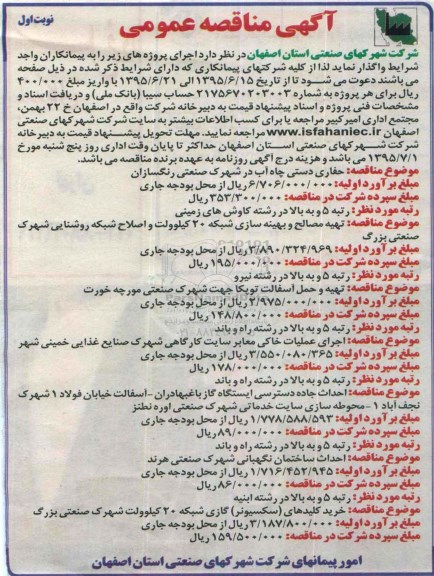 آگهی مناقصه عمومی
نوبت اول
شرکت شهرکهای صنعتی استان اصفهان در نظر دارد اجرای پروژه های زیر را به پیمانکاران واجد
شرایط واگذار نماید لذا از کلیه شرکتهای پیمانکاری که دارای شرایط ذکر شده در ذیل صفحه
می باشند دعوت می شود تا از تاریخ ۱۳۹۵/۶/۱۵ الی ۱۳۹۵/۶/۲۱ با واریز مبلغ ۴۰۰/۰۰۰
ریال برای هر پروژه به شماره ۲۱۷۵۶۷۰۲۰۳۰۰۳ حساب سیبا (بانک ملی) و دریافت اسناد و
مشخصات فنی پروژه و اسناد پیشنهاد قیمت به دبیرخانه شرکت واقع در اصفهان خ ۲۲ بهمن،
مجتمع اداری امیرکبیر مراجعه یا برای کسب اطلاعات بیشتر به سایت شرکت شهرکهای صنعتی
اصفهان www.isfahaniec.ir مراجعه نمایید. مهلت تحویل پیشنهاد قیمت به دبیرخانه
شرکت شهرکهای صنعتی استان اصفهان حداکثر تا پایان وقت اداری روز پنج شنبه مورخ
۱۳۹۵/۷/۱ می باشد و هزینه درج آگهی روزنامه به عهده برنده مناقصه می باشد.
موضوع مناقصه: حفاری دستی چاه آب در شهرک صنعتی رنگسازان
مبلغ برآورد اولیه: ۶/۷۰۶/۰۰۰/۰۰۰ ریال از محل بودجه جاری
مبلغ سپرده شرکت در مناقصه: ۳۵۳/۳۰۰/۰۰۰ ریال
رتبه مورد نظر: رتبه ۵ و به بالا در رشته کاوش های زمینی
موضوع مناقصه: تهیه مصالح و بهینه سازی شبکه ۲۰ کیلوولت و اصلاح شبکه روشنایی شهرک
صنعتی بزرگ
مبلغ برآورد اولیه: ۳/۸۹۰/۳۲۴/۹۶۹ ریال از محل بودجه جاری
مبلغ سپرده شرکت در مناقصه: ۱۹۵/۰۰۰/۰۰۰ ریال
رتبه مورد نظر: رتبه ۵ و به بالا در رشته نیرو
موضوع مناقصه: تهیه و حمل آسفالت توپکا جهت شهرک صنعتی مورچه خورت
مبلغ برآورد اولیه: ۲/۹۷۵/۰۰۰/۰۰۰ ریال از محل بودجه جاری
مبلغ سپرده شرکت در مناقصه: ۱۴۸/۸۰۰/۰۰۰ ریال
رتبه مورد نظر: رتبه ۵ و به بالا در رشته راه و باند
موضوع مناقصه: اجرای عملیات خاکی معابر سایت کارگاهی شهرک صنایع غذایی خمینی شهر
مبلغ برآورد اولیه: ۳/۵۵۰/۰۸۰/۳۶۵ ریال از محل بودجه جاری
مبلغ سپرده شرکت در مناقصه: ۱۷۸/۰۰۰/۰۰۰ ریال
رتبه مورد نظر: رتبه ۵ و به بالا در رشته راه و باند
موضوع مناقصه: احداث جاده دسترسی ایستگاه گاز باغبهادران - آسفالت خیابان فولاد ۱ شهرک
نجف آباد ۱ - محوطه سازی سایت خدماتی شهرک صنعتی اوره نطنز
مبلغ برآورد اولیه: ۱/۷۷۸/۵۸۸/۵۹۳ ریال از محل بودجه جاری
مبلغ سپرده شرکت در مناقصه: ۸۹/۰۰۰/۰۰۰ ریال
رتبه مورد نظر: رتبه ۵ و به بالا در رشته راه و باند
موضوع مناقصه: احداث ساختمان نگهبانی شهرک صنعتی هرند
مبلغ برآورد اولیه: ۱/۷۱۶/۴۵۲/۹۴۵ ریال از محل بودجه جاری
مبلغ سپرده شرکت در مناقصه: ۸۶/۰۰۰/۰۰۰ ریال
رتبه مورد نظر: رتبه ۵ و به بالا در رشته ابنیه
موضوع مناقصه: خرید کلیدهای (سکسیونر) گازی شبکه ۲۰ کیلوولت شهرک صنعتی بزرگ
مبلغ برآورد اولیه: ۳/۱۸۷/۸۰۰/۰۰۰ ریال از محل بودجه جاری
مبلغ سپرده شرکت در مناقصه: ۱۵۹/۵۰۰/۰۰۰ ریال
امور پیمانهای شرکت شهرکهای صنعتی استان اصفهان